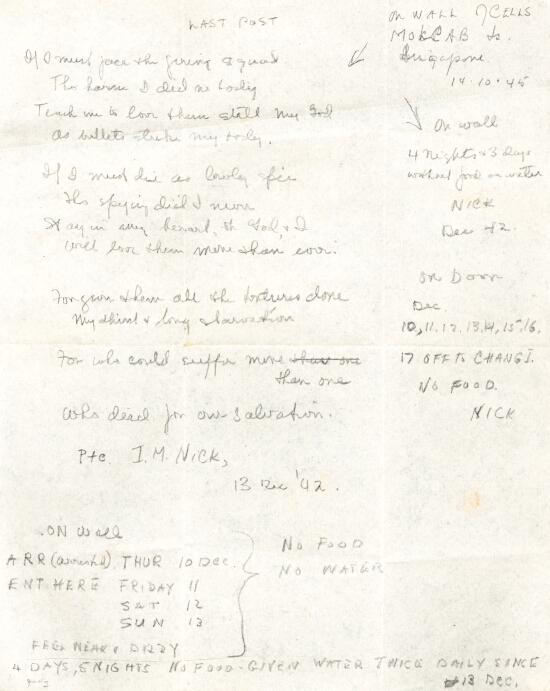 LAST POST
If I must face the firing squad
Tho harm I did no body
Teach me to love them still my God
As bullets strike my body.
If I must die as lowly spie
Tho spying did I never
Stay in my heart, oh God, & I
Will love them more than ever.
Forgive them all the tortures done
My thirst & long starvation
For who could suffer more than one
than one
Who died for our Salvation.
Pte. I.M. NICK,
13 Dec '42.
ON WALL CELLS
Singapore.
14.10.45
On wall
4 nights & 3 days
without food or water
NICK
Dec 42.
On Door
Dec.
10, 11. 12. 13. 14, 15. 16.
17 OFF TO CHANGI.
NO FOOD.
NICK
.ON Wall
ARR (arrested) THUR 10 DEC.
ENT HERE FRIDAY 11
SAT 12
SUN 13
FEEL WEAK & DIZZY
NO FOOD
NO WATER
4 DAYS, 5 NIGHTS NO FOOD - GIVEN WATER TWICE DAILY SINCE
13 DEC.